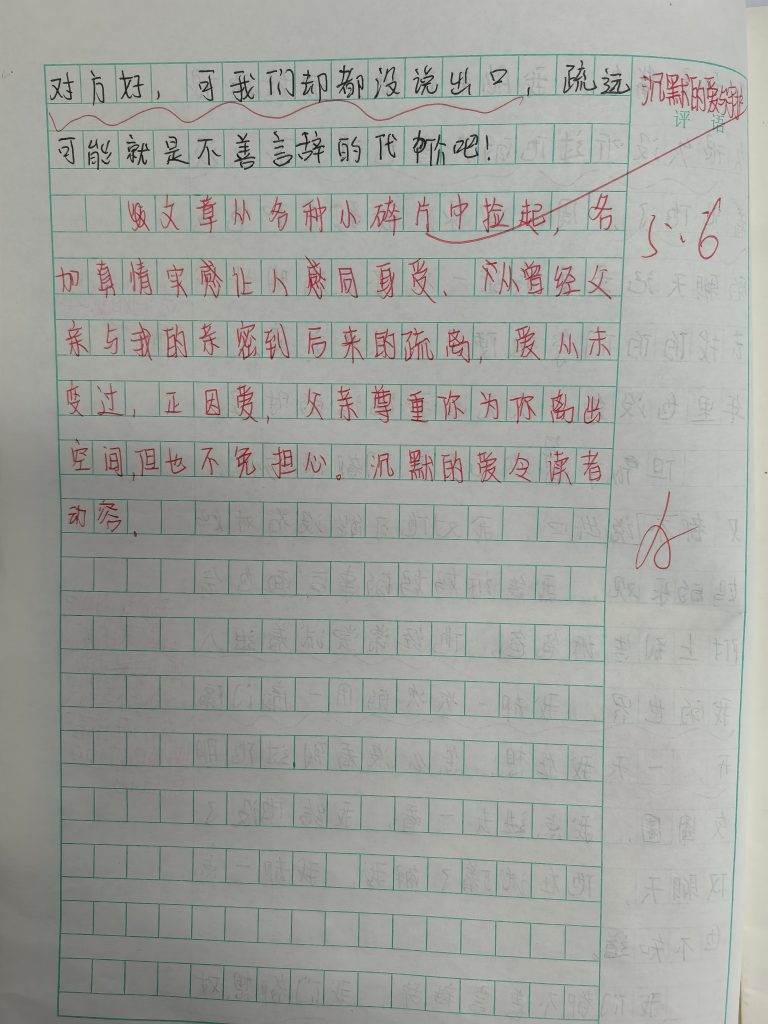 对方好，可我们却都没说出口，疏远
沉默的爱与守护
评语
可能就是不善言辞的代价吧！
文章从各种小碎片中捡起，各
5.6
加真情实感让人感同身受、从曾经父
亲与我的亲密到后来的疏离，爱从未
变过，正因爱，父亲尊重你为你离出
空间，但也不免担心。沉默的爱令读者
动容.